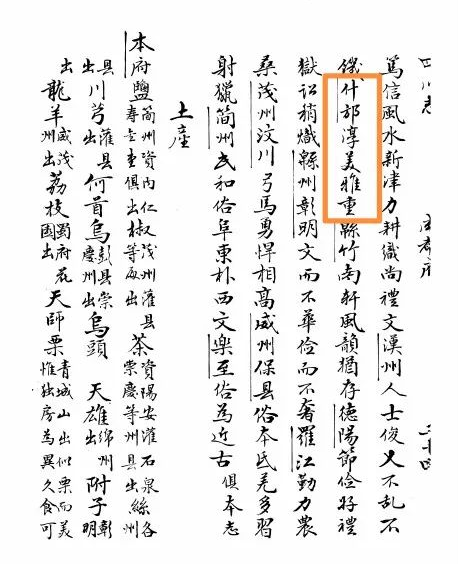 四川志
篤信風水新津力耕織尚禮文漢州人士俊乂不乱不
饑什邡淳美雅重緜竹南軒風韻猶存德陽節儉好禮
獄訟稍熾緜州彰明文而不華儉而不奢羅江勤力農
桑茂州汶川弓馬勇悍相高威州保县俗本氐羌多習
射獵简州民和俗阜東朴西文樂至俗為近古俱本志
土產
本府鹽簡州資内仁壽俱出椒茂州灌县等處出茶資陽安灌石泉各崇慶等州县出絲州
县出川芎灌县出何首烏彭县崇慶州出烏頭天雄綿州出附子彰明
出龍羊威茂州出荔枝蜀府出天師栗青城山出似栗而美惟独房為異久食可